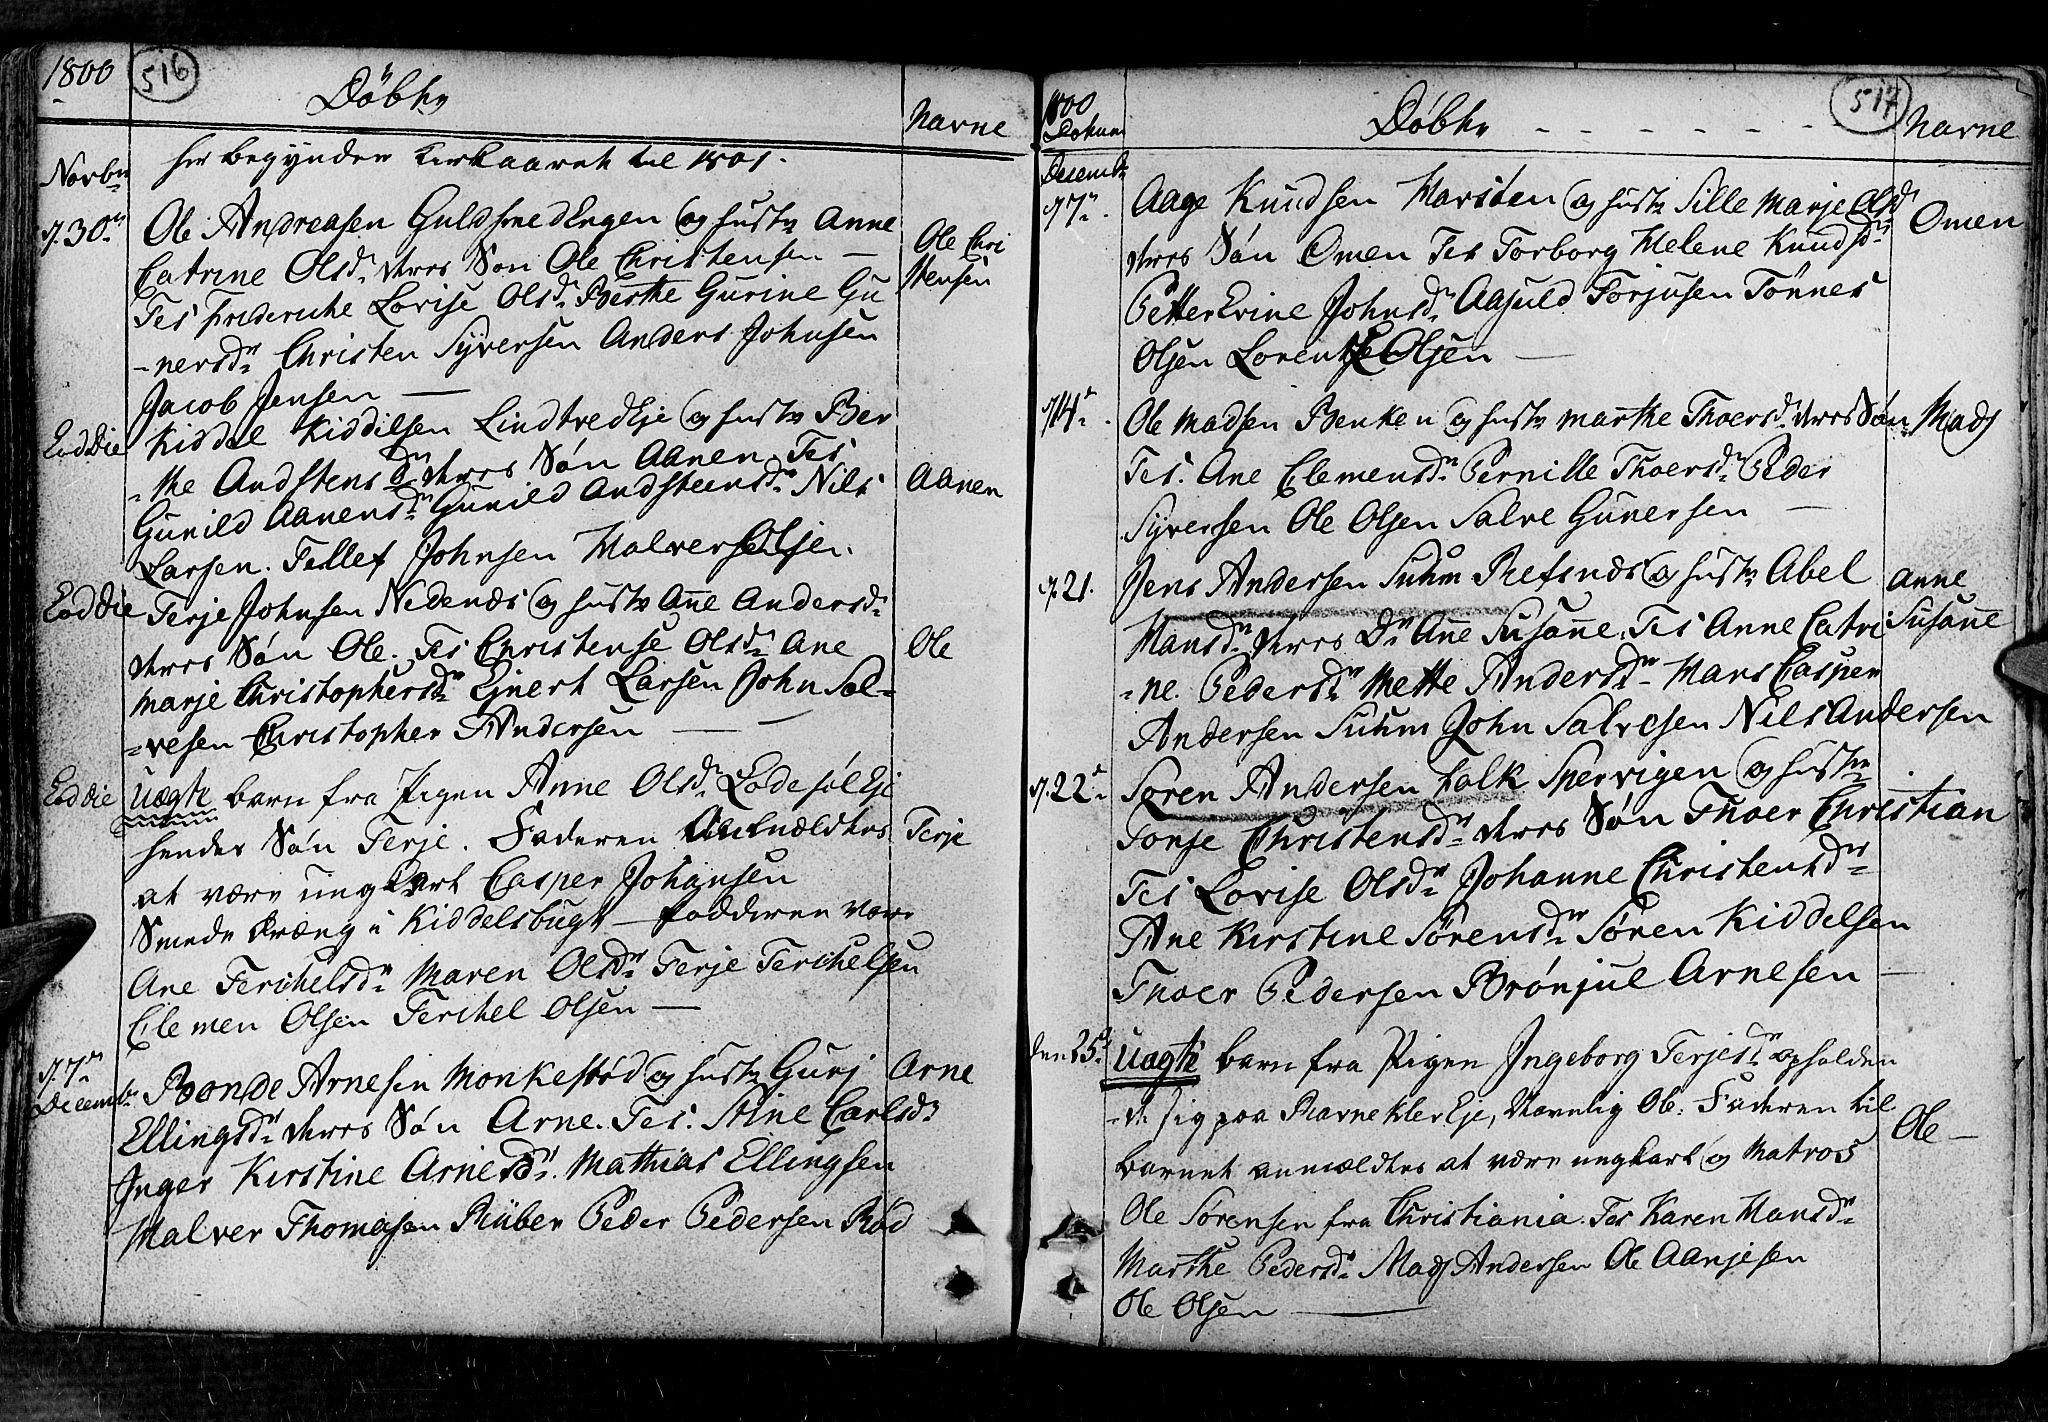 1800
516
Döbhr
Navne
Novbr
her begynder Kirkaareth til 1801.
d. 30n
Ole Andreasen GuldsmedEngen og hustr Anne
Catrine Olsdr. thres Søn Ole Christensen —
Ole Chri
stensen
Tes Frideriche Lovise Olsdr Berthe Gurine Gu
-nersdr Christen Syversen Anders Johnsen
Jacob Jensen —
Eod Die
Kiddel Kiddilsen LindtvedEje og hustr Ber
-the Andstensdr. thres Søn Aanen Tes
Gunild Aanensdr Gunild Andsteensdr Nils
Aanen
Larsen. Tellef Johnsen Halver Olsen.
Eod Die
Terje Johnsen Nedenæs og hustr Anne Andersdr.
thres Søn Ole. Tes Christense Olsdr. Ane
Ole
Marje Christophersdr Ejnert Larsen John Sal-
-vesen Christopher Andersen —
Eod Die
Uægte barn fra Pigen Anne Olsdr. LødesølEje
hendes Søn Terje. Faderen anmældtes
Terje
at være ungkarl Casper Johansen
Smede Dræng i Kiddelsbugt — Fadderne vare
Ane Terchelsdr. Maren Olsdr. Terje Terchelsen
Clemen Olsen Terchel Olsen —
d. 7n
Decembr.
Bonde Arnesen Monkestød og hustr Gurj
Arne
Ellingsdr. thres Søn Arne. Tes. Stine Carlsdr
Inger Kirstine Arnesdr. Mathias Ellingsen
Halver Thomasen Rüber Peder Pedersen Rød
1800
517
Döbhr
Navne
Decembr
d. 7n.
Aage Knudsen Harsten og hustr Sille Marje Olsdr
Omen
thres Søn Omen Tes Torborg Helene Knudsdr.
Petter Erine Johnsdr. Aasuld Torjusen Tønnes
Olsen Lorents Olsen —
d. 14.
Ole Madsen Benken og hustr Marthe Thoersdr. thres Søn
Mads
Tes. Ane Clemensdr. Pernille Thoersdr. Peder
Syversen Ole Olsen Salve Gunersen —
d. 21.
Jens Andersen Suhm Refsnæs og hustr Abel
Anne
Susanne
Hansdr. thres Dr. Anne Susanne. Tes Anne Catri
-ne. Pedersdr. Mette Andersdr. Hans Casper
Andersen Suhm John Salvesen Nils Andersen
d. 22.
Søren Andersen Falk Spervigen og hustr
Tonje Christensdr. thres Søn Thoer Christian
Tes Lovise Olsdr. Johanne Christensdr.
Ane Kirstine Sørensdr. Søren Kiddelsen
Thoer Pedersen Brønjul Arnesen —
den 25.
Uægte barn fra Pigen Ingeborg Terjesdr. opholden
-de sig paa Biorneklev Eje, Navnlig Ole. Faderen til
Ole —
barnet anmældtes at være ungkarl og Matros
Ole Sørensen fra Christiania. Tes Karen Hansdr.
Marthe Pedersdr. Mads Andersen Ole Aanjesen
Ole Olsen —